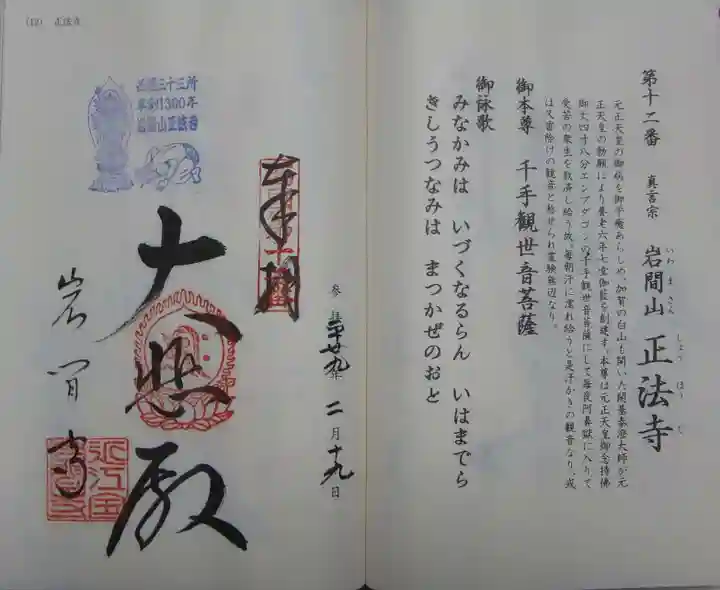 第十二番　真言宗　岩間山　正法寺
いわ　ま　さん　しょう　ほう　じ
元正天皇の御病を御平癒あらしめ、加賀の白山も開いた開基泰澄大師が元
正天皇の勅願により養老六年七堂伽藍を創建す。本尊は元正天皇御念持佛
御丈四寸八分エンブダゴンの千手観世音菩薩にして毎夜阿鼻獄に入りて
受苦の衆生を救済し給う故、毎朝汗に濡れ給うと是汗かきの観音なり、或
は又雷除けの観音と称せられ霊験無辺なり。
御本尊　千手觀世音菩薩
御詠歌
みなかみは　いづくなるらん　いはまでら
きしうつなみは　まつかぜのおと
(12)　正法寺
西国三十三所
草創1300年
岩間山正法寺
奉拝
参拝 平廿九年 二月十九日
大悲殿
岩間寺
近江国